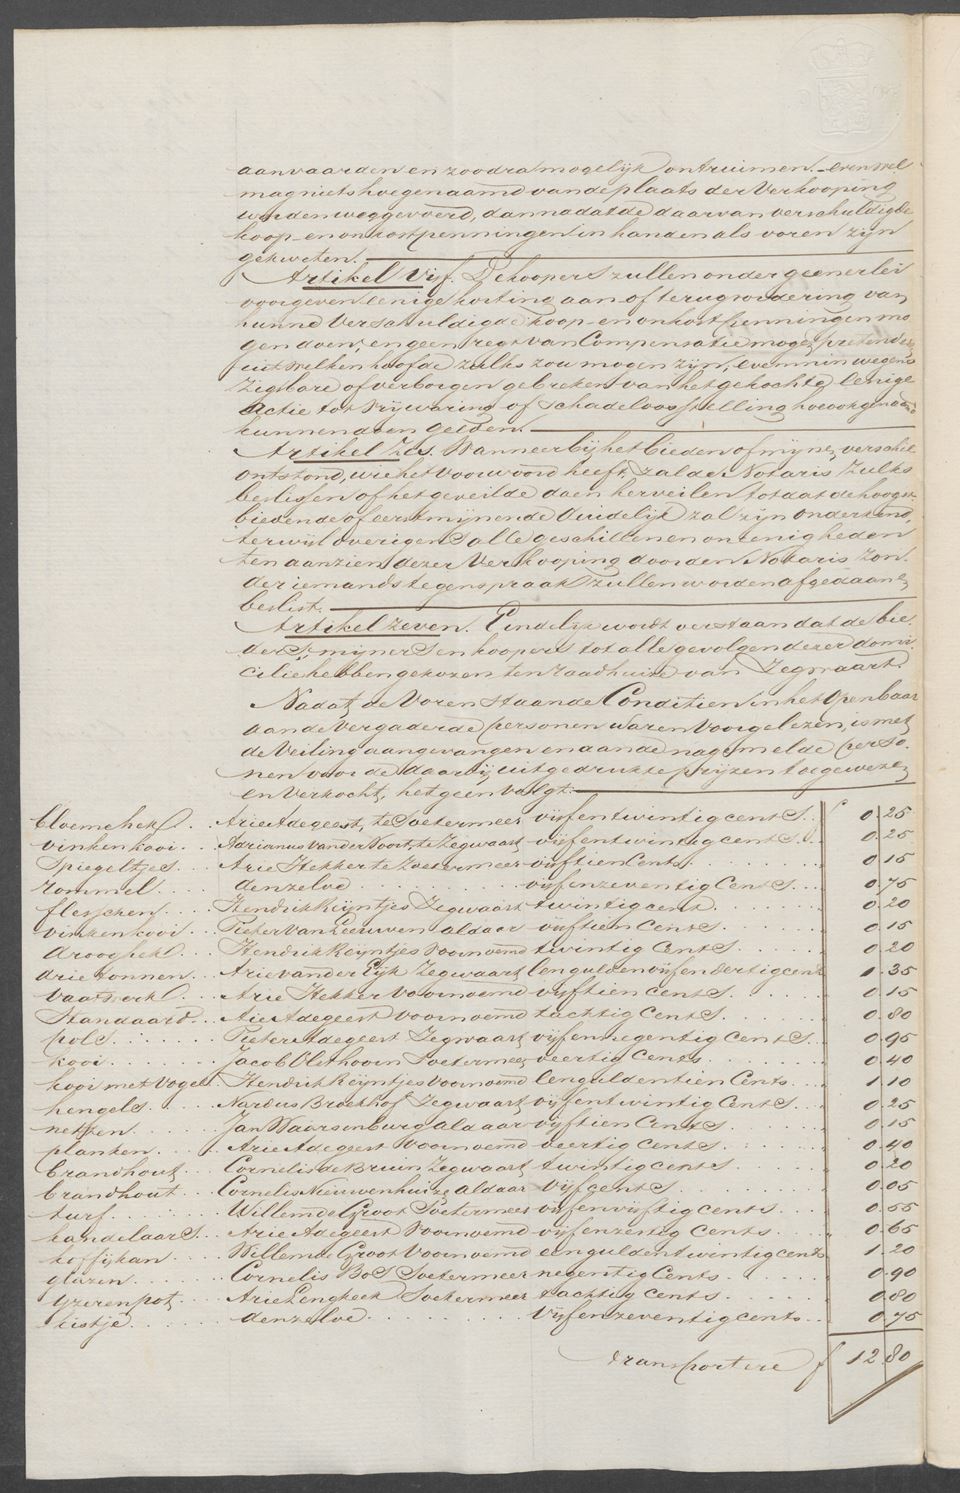 aanvaarden en zoodra mogelijk ontruimen. evenwel
mag niets hoegenaamd van de plaats der Verkooping
worden weggevoerd, dan nadat de daarvan verschuldigde
koop- en onkostpenningen in handen als voren zijn
gekweten.
Artikel Vijf. De koopers zullen onder geenerlei
voorgeven eenige korting aan of terugvordering van
hunne Verschuldigde koop- en onkostpenningen mo
gen doen, en geen regt van Compensatie mogen pretenderen
uit welken hoofde zulks zou mogen zijn, evenmin wegens
Zigtbare of verborgen gebreken van het gekochte eenige
actie tot vrijwaring of schadeloosstelling hoe ook genaamd
kunnen doen gelden.
Artikel Zes. Wanneer bij het bieden of mijnen verschil
ontstond, wie het voorwoord heeft, zal de Notaris zulks
beslissen of het geveilde doen herveilen totdat de hoogst
biedende of eerst mijnende duidelijk zal zijn onderkend,
terwijl overigens alle geschillen en oneenigheden
ten aanzien dezer Verkooping door den Notaris zon
der iemands tegenspraak zullen worden afgedaan en
beslist.
Artikel zeven. Eindelijk wordt verstaan dat de bie
ders, mijners en koopers tot alle gevolgen dezer domi
cilie hebben gekozen ten raadhuize van Zegwaart.
Nadat de Voren staande Conditien in het Openbaar
aan de Vergaderde personen waren voorgelezen, is met
de Veiling aangevangen en aan de nagemelde perso
nen voor de daarbij uitgedrukte prijzen toegewezen
en Verkocht, hetgeen volgt:
bloemehek .. Arie Adegeest, te Soetermeer vijfentwintig cents .. f 0.25
vinkenkooi .. Adrianus van der Voort, te Zegwaart vijfentwintig cents .. 0.25
Spiegeltjes .. Arie Hekker te Zoetermeer vijftien Cents .. 0.15
rommel .... denzelve ........ vijfenzeventig Cents ... 0.75
flesschen .... Hendrik Reijntjes Zegwaart twintig cent ..... 0.20
vinkenkooi ... Pieter van Leeuwen aldaar vijftien Cents ..... 0.15
drooghek ... Hendrik Reijntjes Voornoemd twintig Cents ..... 0.20
drie tonnen ... Arie van der Eijk Zegwaart Een gulden vijfendertig cent 1.35
Vaatwerk ... Arie Hekker Voornoemd vijftien Cents ..... 0.15
Standaard ... Arie Adegeest Voornoemd tachtig Cents ..... 0.80
pols ...... Pieter Adegeest Zegwaart vijfennegentig cents .. 0.95
kooi ...... Jacob Olsthoorn Soetermeer veertig Cents ..... 0.40
kooi met vogel .. Hendrik Reijntjes Voornoemd Een gulden tien Cents ... 1.10
hengels .... Nardus Broekhof Zegwaart vijfentwintig Cents ... 0.25
netten ..... Jan Waarsenburg aldaar vijftien Cents ..... 0.15
planken .... Arie Adegeest Voornoemd veertig Cents ..... 0.40
brandhout ... Cornelis de Bruin Zegwaart twintig cents ..... 0.20
brandhout ... Cornelis Nieuwenhuize aldaar vijf cents ..... 0.05
turf ...... Willem de Groot Soetermeer vijfenvijftig cents .... 0.55
handelaars ... Arie Adegeest Voornoemd vijfenzestig Cents .... 0.65
koffijkan .... Willem de Groot Voornoemd een gulden twintig cents 1.20
glazen ..... Cornelis Bos Soetermeer negentig Cents ..... 0.90
Yzerenpot ... Arie Lengkeek Soetermeer tachtig Cents ..... 0.80
kistje ..... denzelve ....... Vijfenzeventig Cents .. 0.75
transportere f 12.80